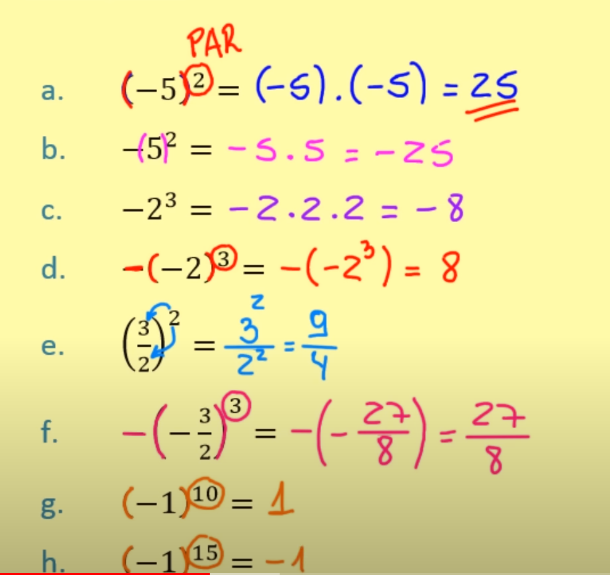 PAR
a. (−5)² = (-5).(-5) = 25
b. −(5)² = -5.5 = -25
c. −2³ = -2.2.2 = -8
d. −(−2)³ = -(-2³) = 8
e. (3/2)² = 3²/2² = 9/4
f. −(−3/2)³ = -(-27/8) = 27/8
g. (−1)¹⁰ = 1
h. (−1)¹⁵ = -1